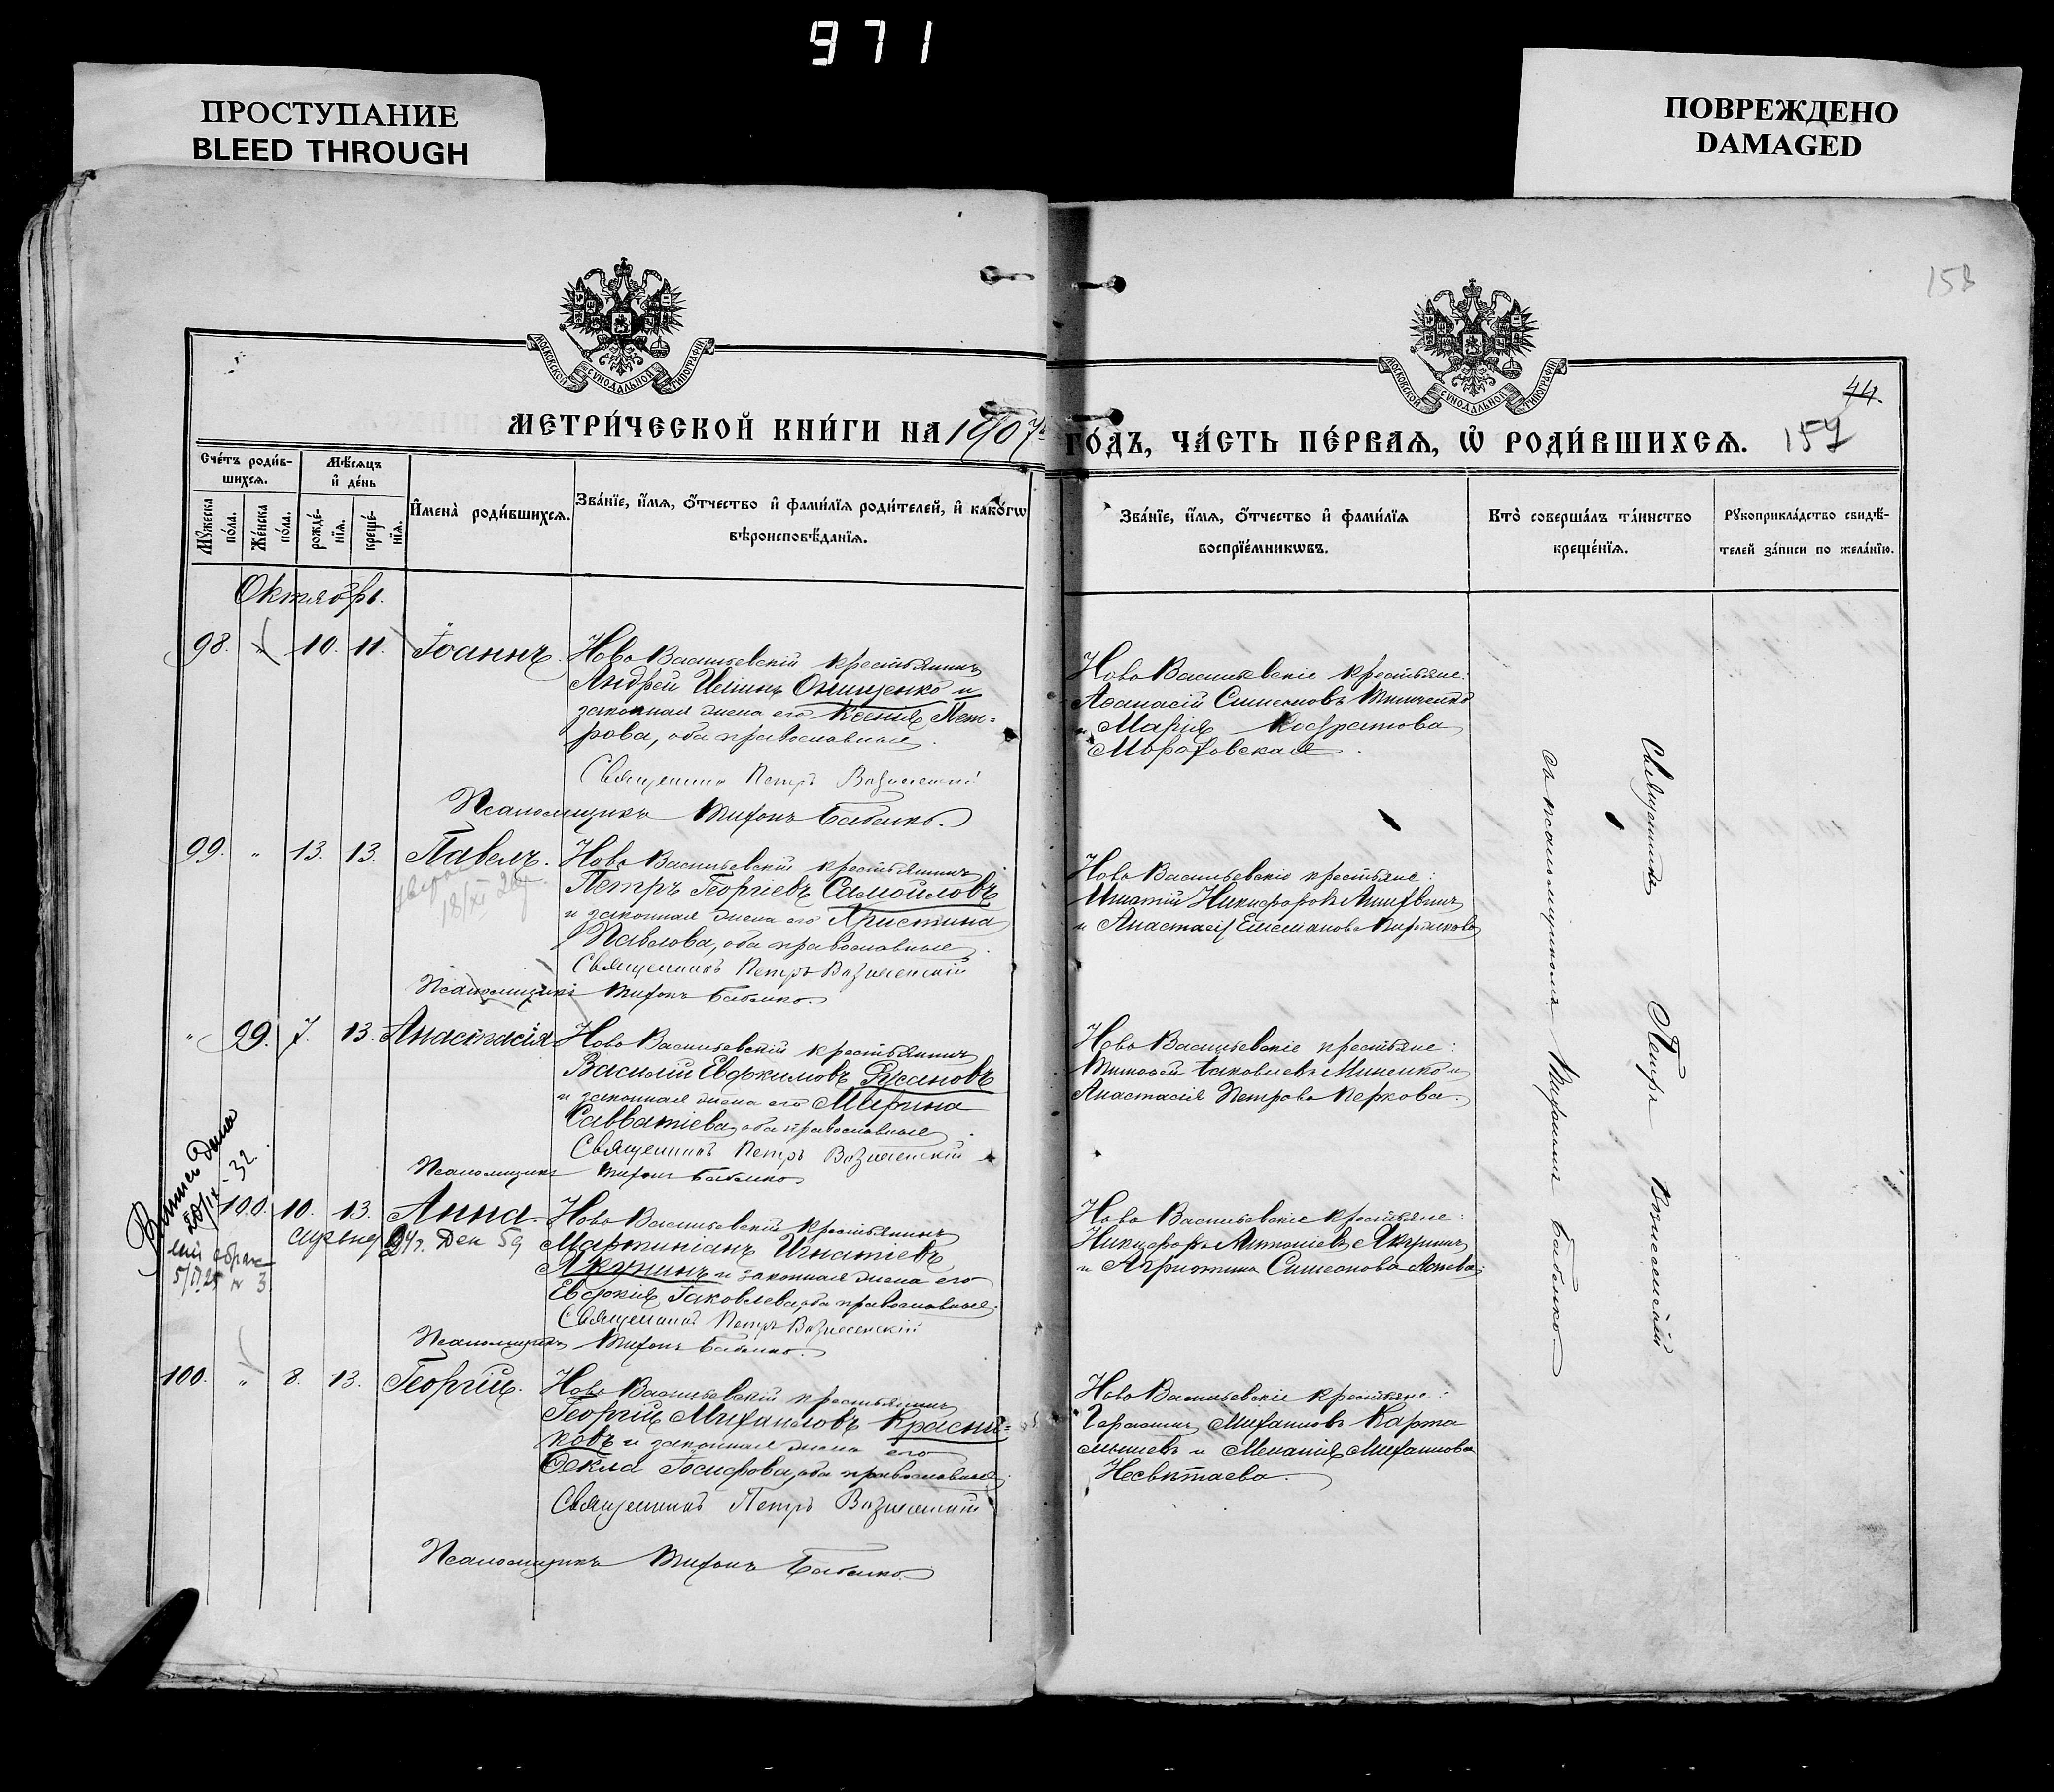 971
ПРОСТУПАНИЕ
BLEED THROUGH
ПОВРЕЖДЕНО
DAMAGED
158
МОСКОВСКОЙ СѴНОДАЛЬНОЙ ТИПОГРАФІИ
МОСКОВСКОЙ СѴНОДАЛЬНОЙ ТИПОГРАФІИ
44.
157
МЕТРИ́ЧЕСКОЙ КНИ́ГИ НА 1907й
ГО́ДЪ, ЧА́СТЬ ПЕ́РВАѦ, Ѡ҆ РОДИ́ВШИХСѦ.
Сче́тъ роди́в-
шихсѧ.
Мѣ́сѧцъ
и҆ де́нь
Мꙋ́жеска по́ла.
Же́нска по́ла.
рожде́-нїѧ.
креще́-нїѧ.
И҆мена̀ роди́вшихсѧ.
Зва́нїе, и҆́мѧ, ѻ҆́тчество и҆ фами́лїѧ роди́телей, и҆ како́гѡ
вѣроисповѣ́данїѧ.
Зва́нїе, и҆́мѧ, ѻ҆́тчество и҆ фами́лїѧ
воспрїе́мникѡвъ.
Кто̀ соверша́лъ та́инство
креще́нїѧ.
Рꙋкоприкла́дство свидѣ́-
телей за́писи по жела́нїю.
Октябрь.
98. " 10. 11. Іоаннъ.
Ново Васильевскій крестьянинъ
Андрей Онищенко и
законная жена его Ксенія Пет=
рова, оба православные.
Священникъ Петръ Вознесенскій
Псаломщикъ Тихонъ Бабенко.
Ново Васильевскіе крестьяне:
Аѳанасій Симеоновъ
и Марія
99. " 13. 13. Павелъ.
18/XI
Ново Васильевскій крестьянинъ
Петръ Георгіевъ Самойловъ
и законная жена его Христина
Павлова, оба православные.
Священникъ Петръ Вознесенскій
Псаломщикъ Тихонъ Бабенко.
Ново Васильевскіе крестьяне:
Игнатій Никифоровъ
и Анастасія
" 99. 7. 13. Анастасія
Ново Васильевскій крестьянинъ
Василій Евѳимовъ Русановъ
и законная жена его Марина
Савватіева, оба православные.
Священникъ Петръ Вознесенскій
Псаломщикъ Тихонъ Бабенко.
Ново Васильевскіе крестьяне:
Тимоѳей Іаковлевъ Миненко и
Анастасія Петрова Перкова.
20/IX - 32.
100. 10. 13. Анна.
5/ 25 3
Ново Васильевскій крестьянинъ
Мартиніанъ Игнатіевъ
Акунинъ и законная жена его
Евдокія Іаковлева, оба православные.
Священникъ Петръ Вознесенскій
Псаломщикъ Тихонъ Бабенко.
Ново Васильевскіе крестьяне:
Никифоръ Антоніевъ Акунинъ
и Симеонова
100. " 8. 13. Георгій.
Ново Васильевскій крестьянинъ
Георгій Михаиловъ Красни=
ковъ и законная жена его
Ѳекла Іосифова, оба православные.
Священникъ Петръ Вознесенскій
Псаломщикъ Тихонъ Бабенко.
Ново Васильевскіе крестьяне:
Герасимъ Михаиловъ Карта
мышевъ и Меланія Михаилова
Несвѣтаева.
Священникъ Петръ Вознесенскій
съ псаломщикомъ Тихономъ Бабенко.